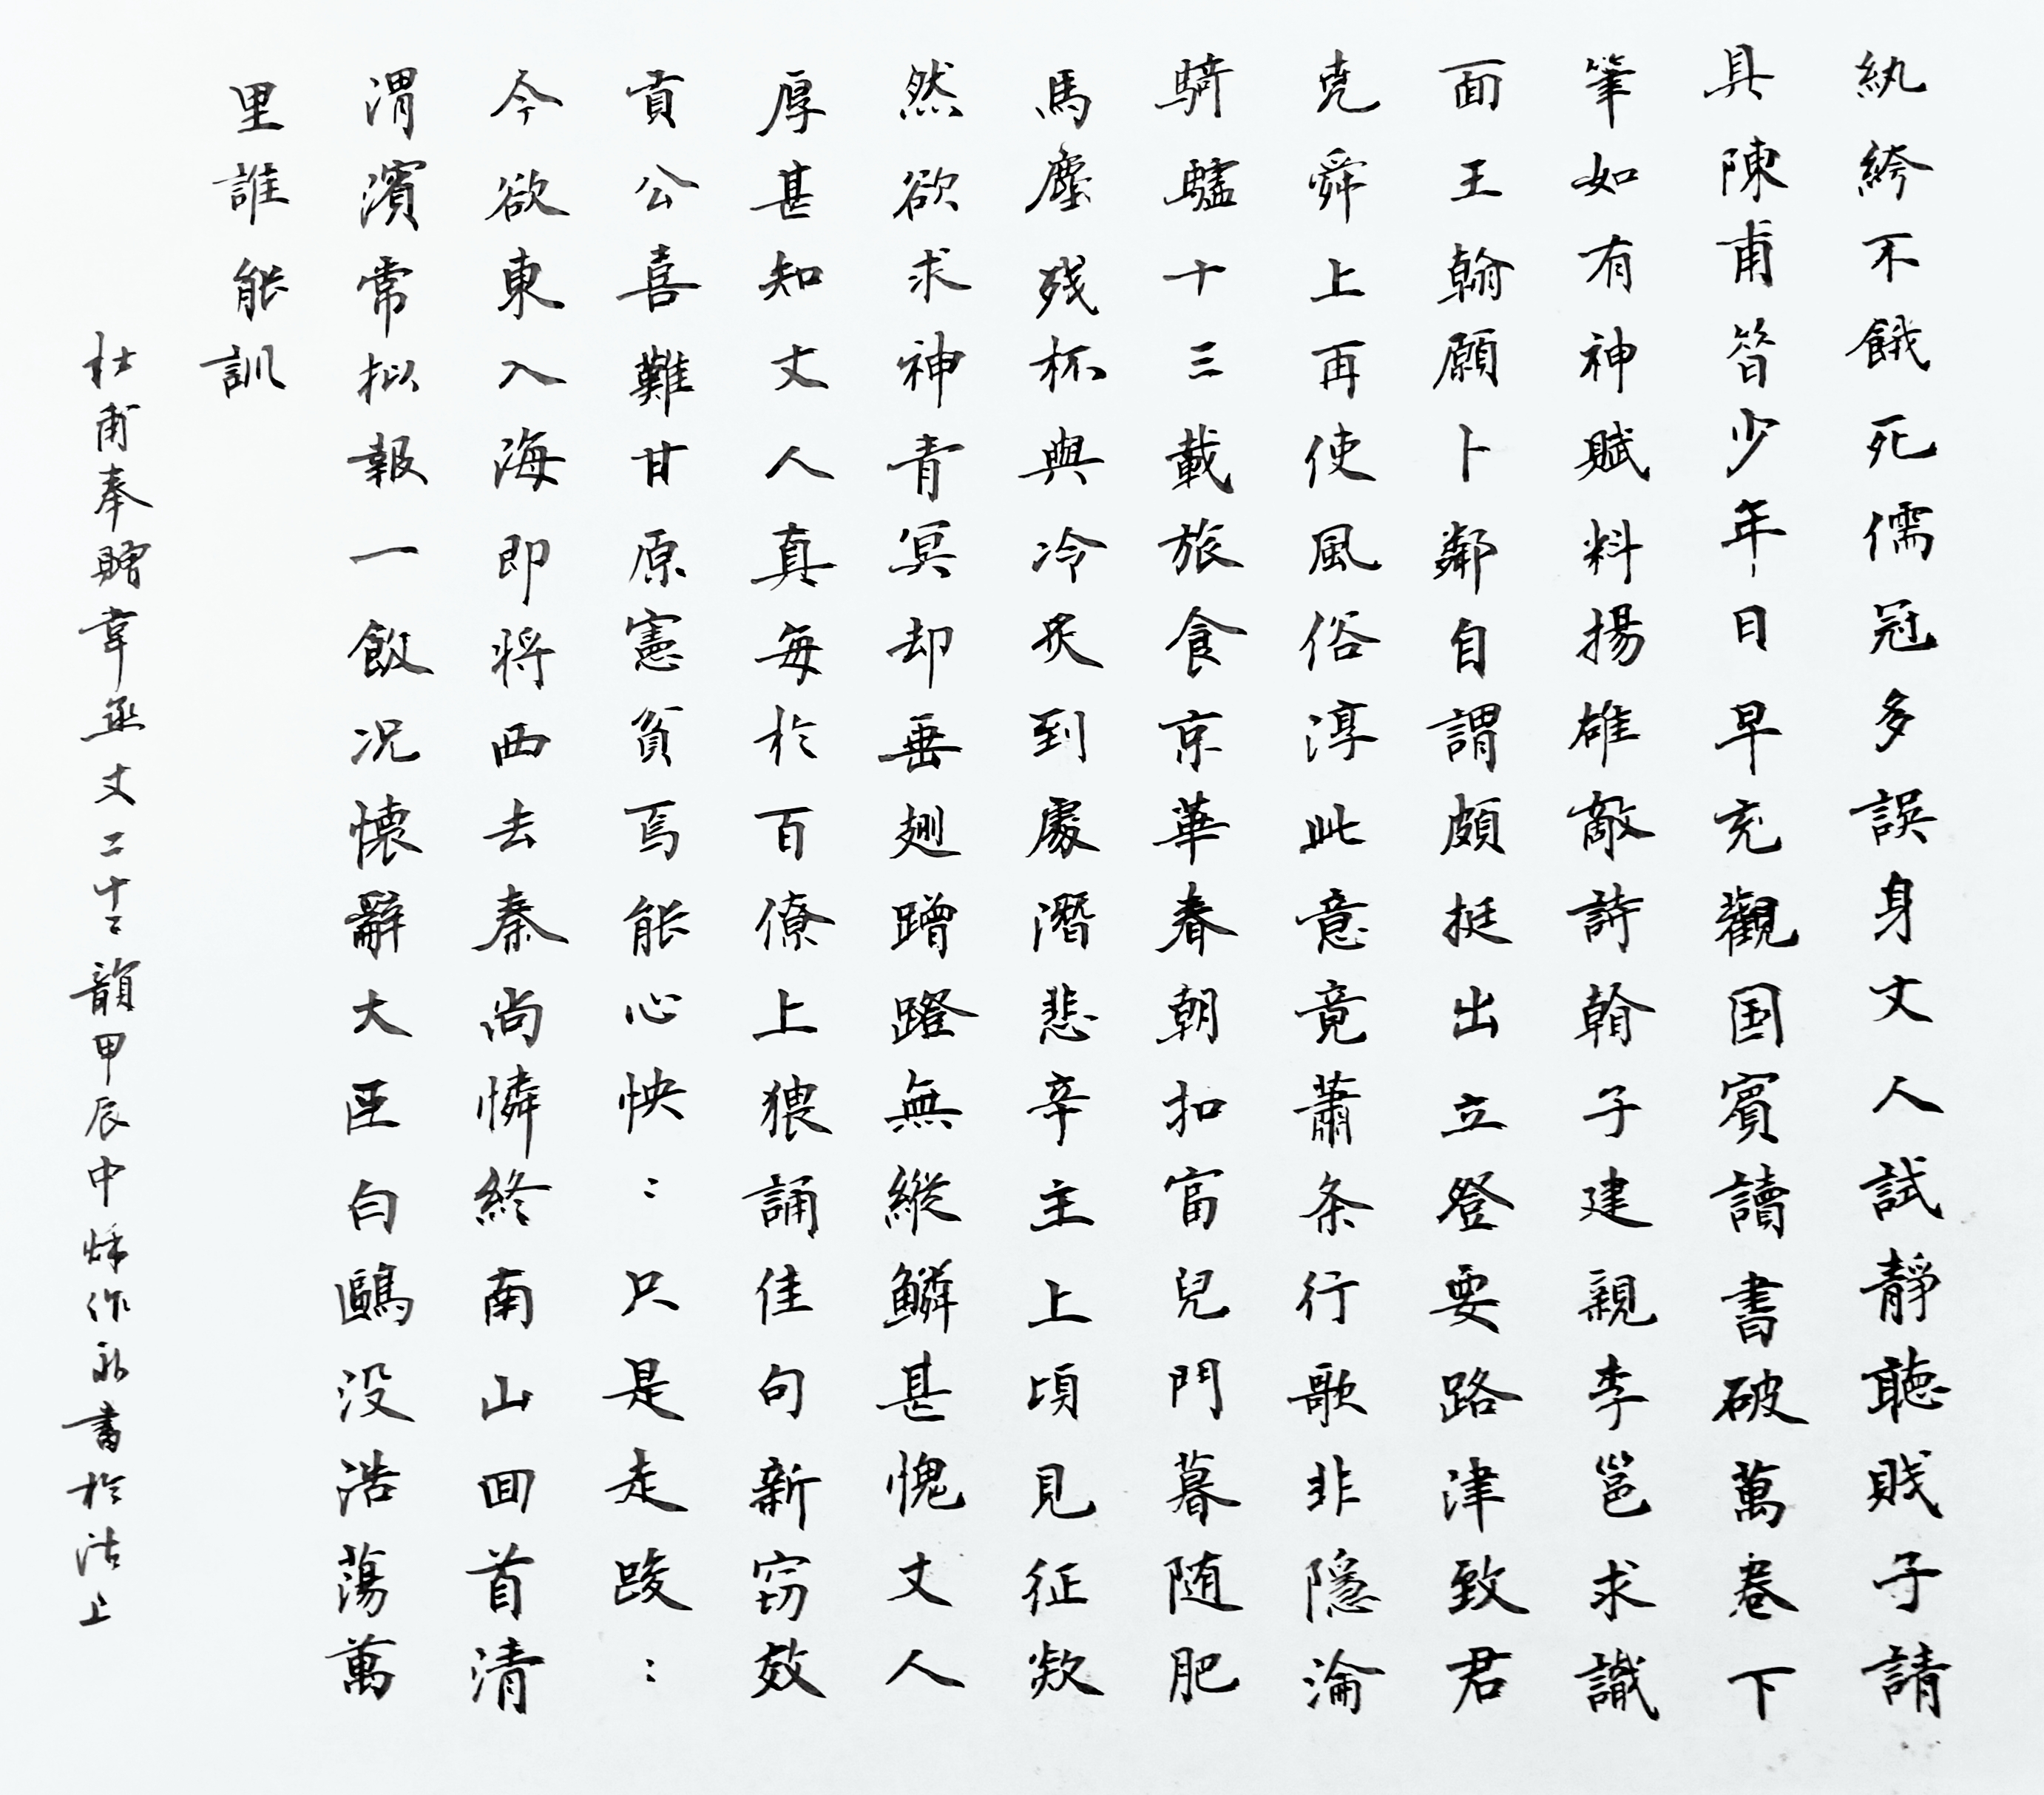 紈絝不餓死儒冠多誤身丈人試靜聽賤子請
具陳甫昔少年日早充觀国賓讀書破萬卷下
筆如有神賦料揚雄敵詩幹子建親李邕求識
面王翰願卜鄰自謂頗挺出立登要路津致君
堯舜上再使風俗淳此意竟蕭条行歌非隱淪
騎驢十三載旅食京華春朝扣富兒門暮随肥
馬塵残杯與冷炙到處潛悲辛主上頃見征欻
然欲求神青冥却垂翅蹭蹬無縱鱗甚愧丈人
厚甚知丈人真每於百僚上猥誦佳句新窃效
貢公喜難甘原憲貧焉能心怏：只是走踆：
今欲東入海即将西去秦尚憐終南山回首清
渭濱常拟報一飯况懷辭大臣白鷗没浩蕩萬
里誰能訓
杜甫奉贈韋丞丈二十二韻甲辰中秌作永書於沽上